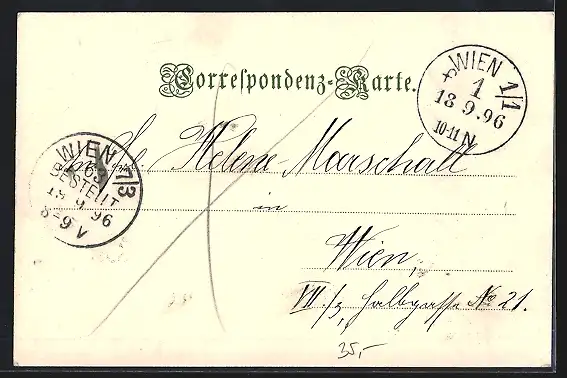 Correspondenz-Karte.
WIEN 1/1
1
18 9.96
10-11 N
WIEN 7/3
63
BESTELLT
19. 9. 96
8-9 V
Helene Marschall
in
Wien,
VII./3, Halbgasse No 21.
35,-